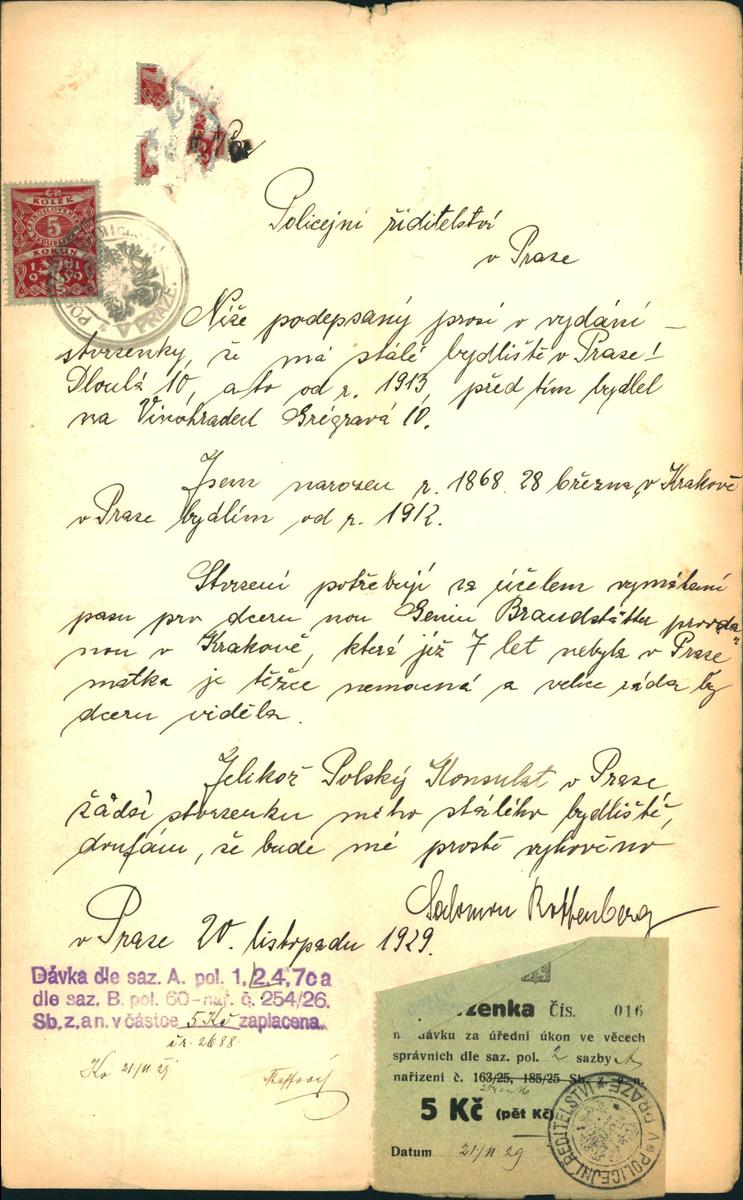 Policejní řiditelství
v Praze
KOLEK
5
KORUN
V PRAZE.
Níže podepsaný prosí v vydání
stvrzenky, že má stálé bydliště v Praze I
Dlouhá 10, a to od r. 1913, před tím bydlel
na Vinohradech Grégrová 10.
Jsem narozen r. 1868. 28 března, v Krakově
v Praze bydlím od r. 1912.
Stvrzení potřebuji za účelem vymáhaní
pasu pro dceru mou Geniu Brandstätter provda
nou v Krakově, která již 7 let nebyla v Praze
matka je těžce nemocná a velice ráda by
dceru viděla.
Jelikož Polský Konsulat v Praze
žádá stvrzenku mého stálého bydliště,
doufám, že bude mé prosbě vyhověno
Salomon Rottenberg
v Praze 20. listopadu 1929.
Dávka dle saz. A. pol. 1, 2.4, 7c a
dle saz. B. pol. 60 - nař. č. 254/26.
Sb. z. a n. v částce 5 Kč zaplacena.
čr. 2688
21/11 29
zenka Čís. 016
dávku za úřední úkon ve věcech
správních dle saz. pol. 2 sazby A
nařízení č. 163/25, 185/25 Sb. z. a n.
5 Kč (pět Kč)
Datum 21/11 29
POLICEJNÍ ŘEDITELSTVÍ V PRAZE